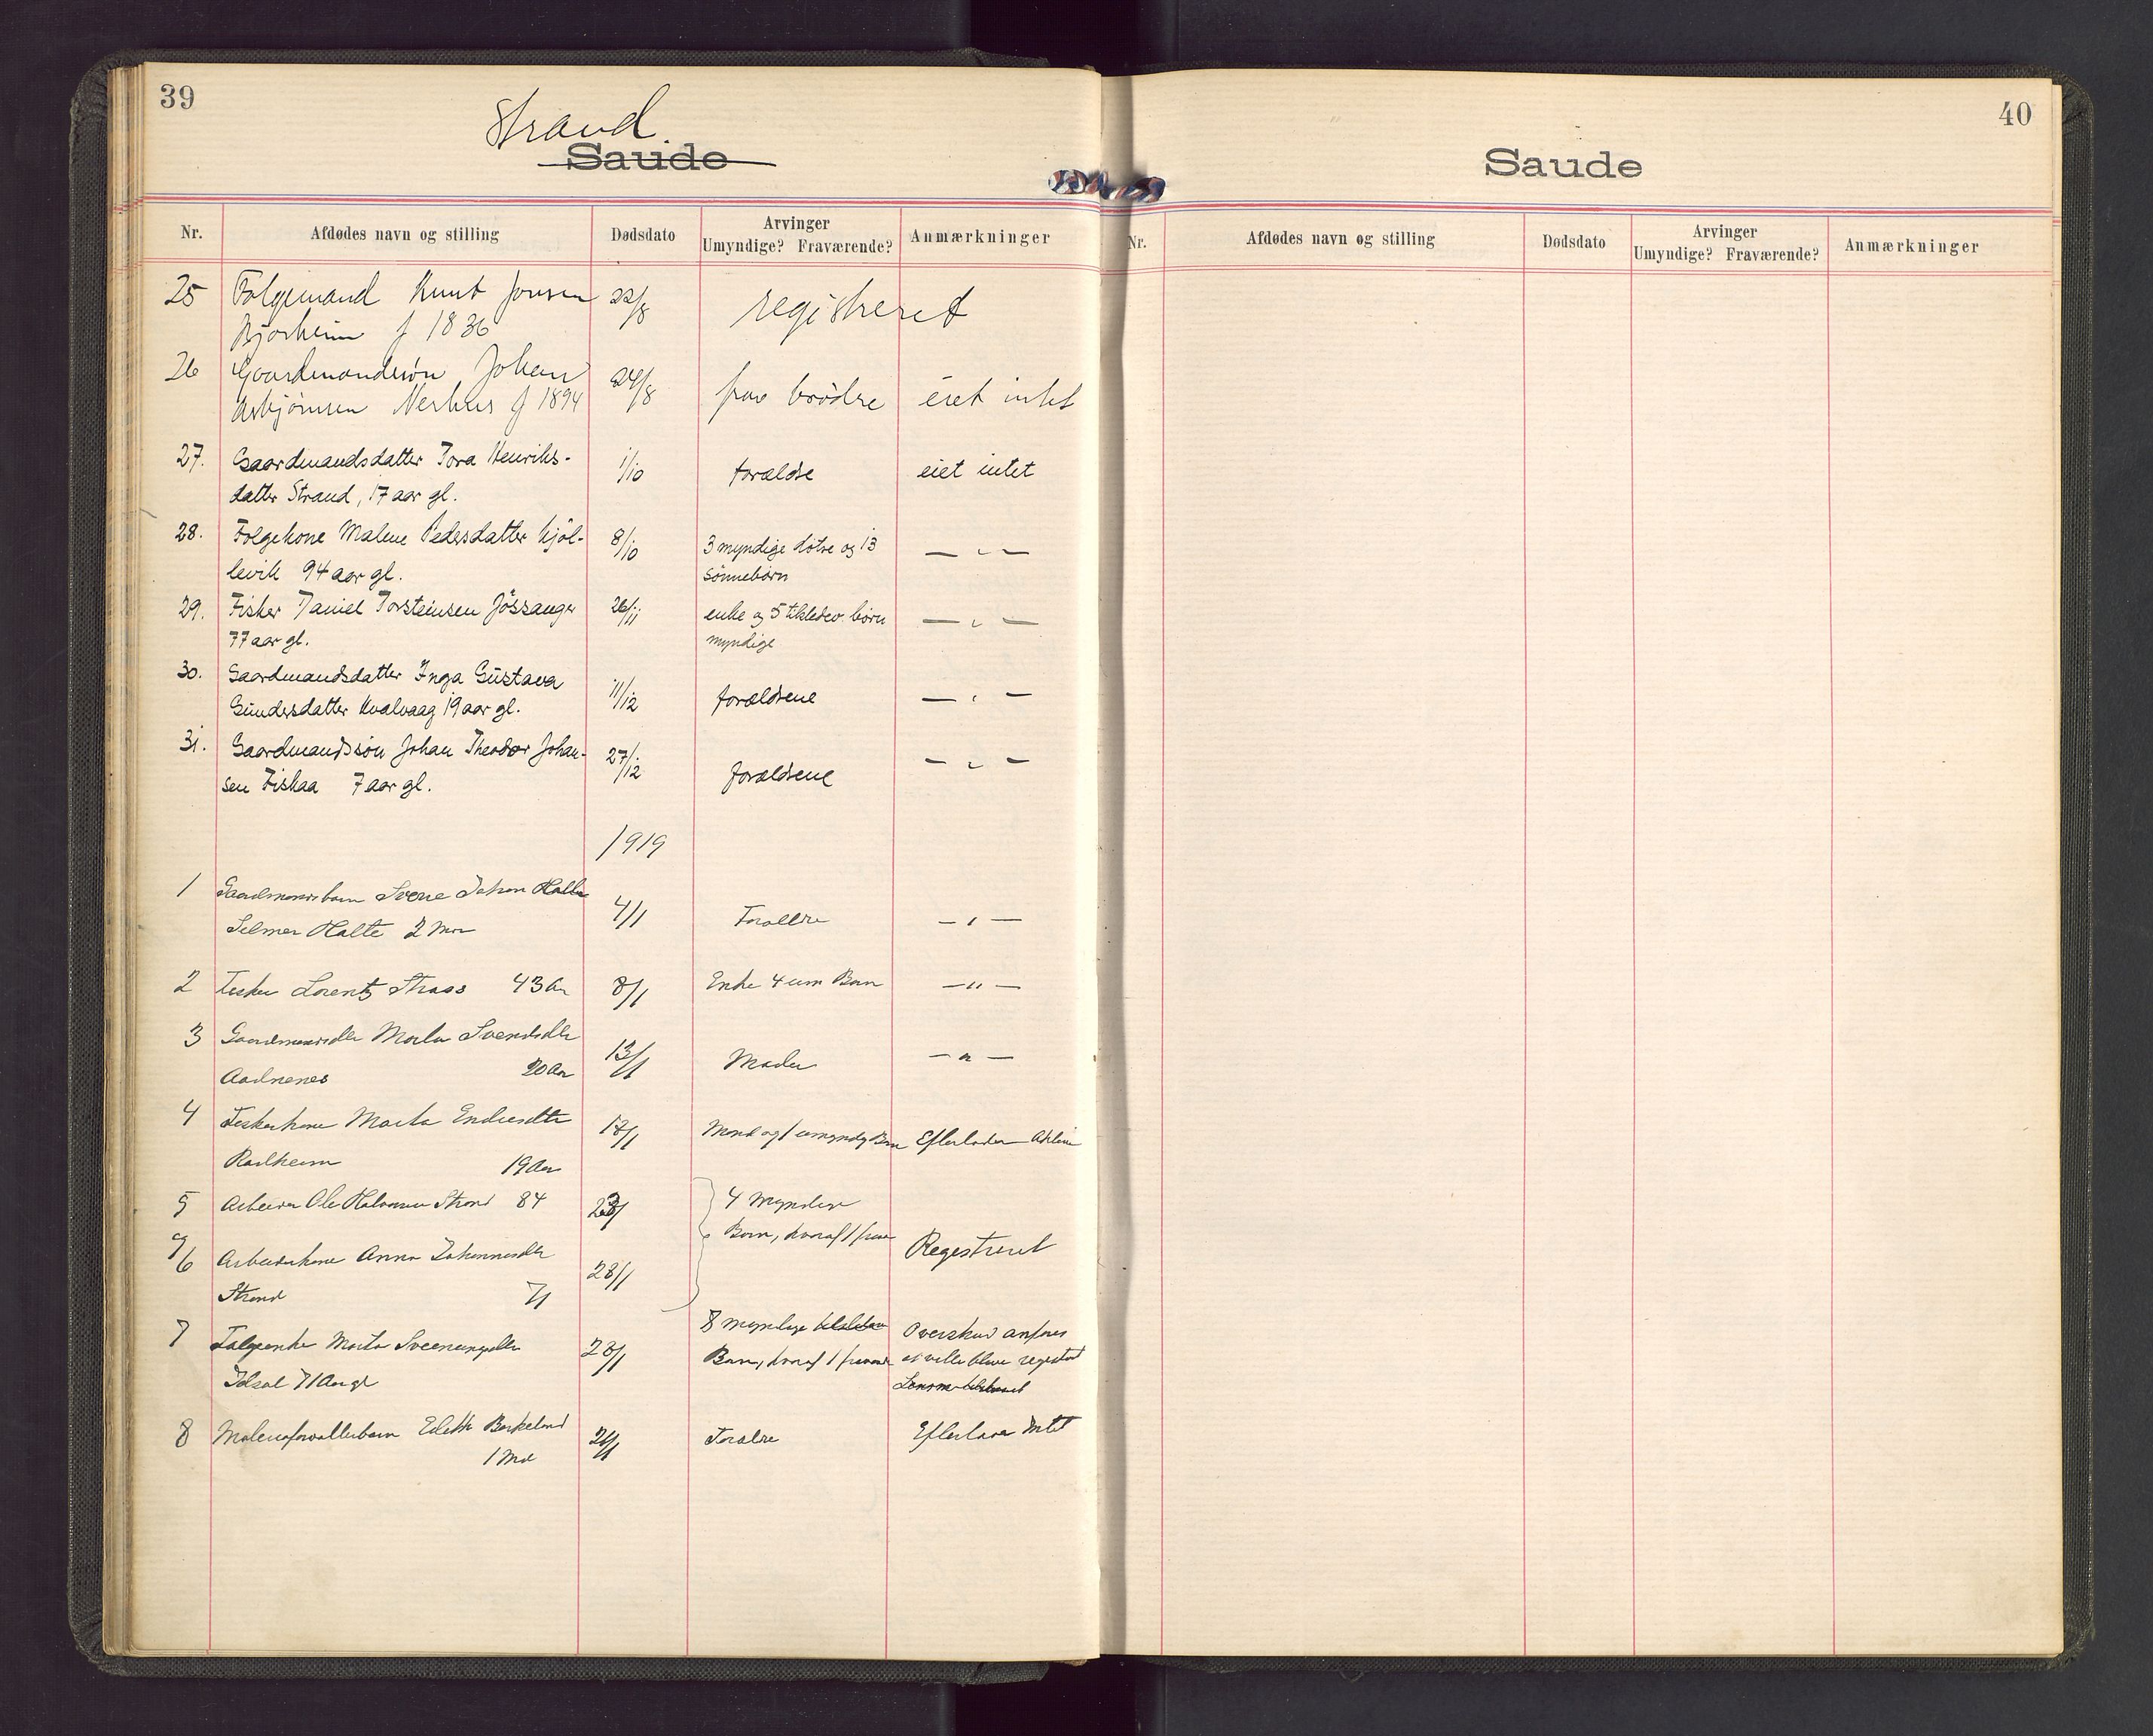 39
Strand
Saude
Nr. Afdødes navn og stilling Dødsdato Arvinger Umyndige? Fraværende? Anmærkninger
25 Folgemand Knut Jonsen 22/8 registreret
Bjørheim f 1836
26 Gaardmandssøn Johan 24/8 frav brødre eiet intet
Asbjørnsen Nerhus f 1894
27. Gaardmandsdatter Tora Henriks- 1/10 forældre eiet intet
datter Strand, 17 aar gl.
28. Folgekone Malene Pedersdatter Kjøl- 8/10 3 myndige døtre og 13 — " —
levik 94 aar gl. sønnebørn
29. Fisker Daniel Torsteinsen Jøssanger 26/11 enke og 5 tilstedev. børn — " —
77 aar gl. myndige
30. Gaardmandsdatter Inga Gustava 11/12 forældrene — " —
Gundersdatter Kvalvaag 19 aar gl.
31. Gaardmandssøn Johan Theodor Johan- 27/12 forældrene — " —
sen Fiskaa 7 aar gl.
1919
1 Gaardmandsbarn Sverre Johan Halle 4/1 Forældre — " —
Selmer Halte 2 Mdr
2 Fisker Lorentz 43 Aar 8/1 Enke 4 um Børn — " —
3 Gaardmandsdtr Marta Svendsdtr 13/1 Moder — " —
Aadnenes 20 Aar
4 Fiskerkone Marta Endresdtr 18/1 Mand og 1 umyndig Barn Efterlader
19 Aar
5 Arbeider Ole Halvorsen Strand 84 23/1 4 Myndige
Børn, hvoraf 1 frav Registreret
6 Arbeiderkone Anna Johannesdtr 28/1
Strand 71
7 Folgeenke Marta Sveenungsdtr 28/1 8 myndige Overskud anføres
Idsal 71 Aar gl Børn, hvoraf 1 fraværende at ville blive registreret
8 Edith Barkeland 26/1 Forældre Efterlader Intet
1 Md
40
Saude
Nr. Afdødes navn og stilling Dødsdato Arvinger Umyndige? Fraværende? Anmærkninger